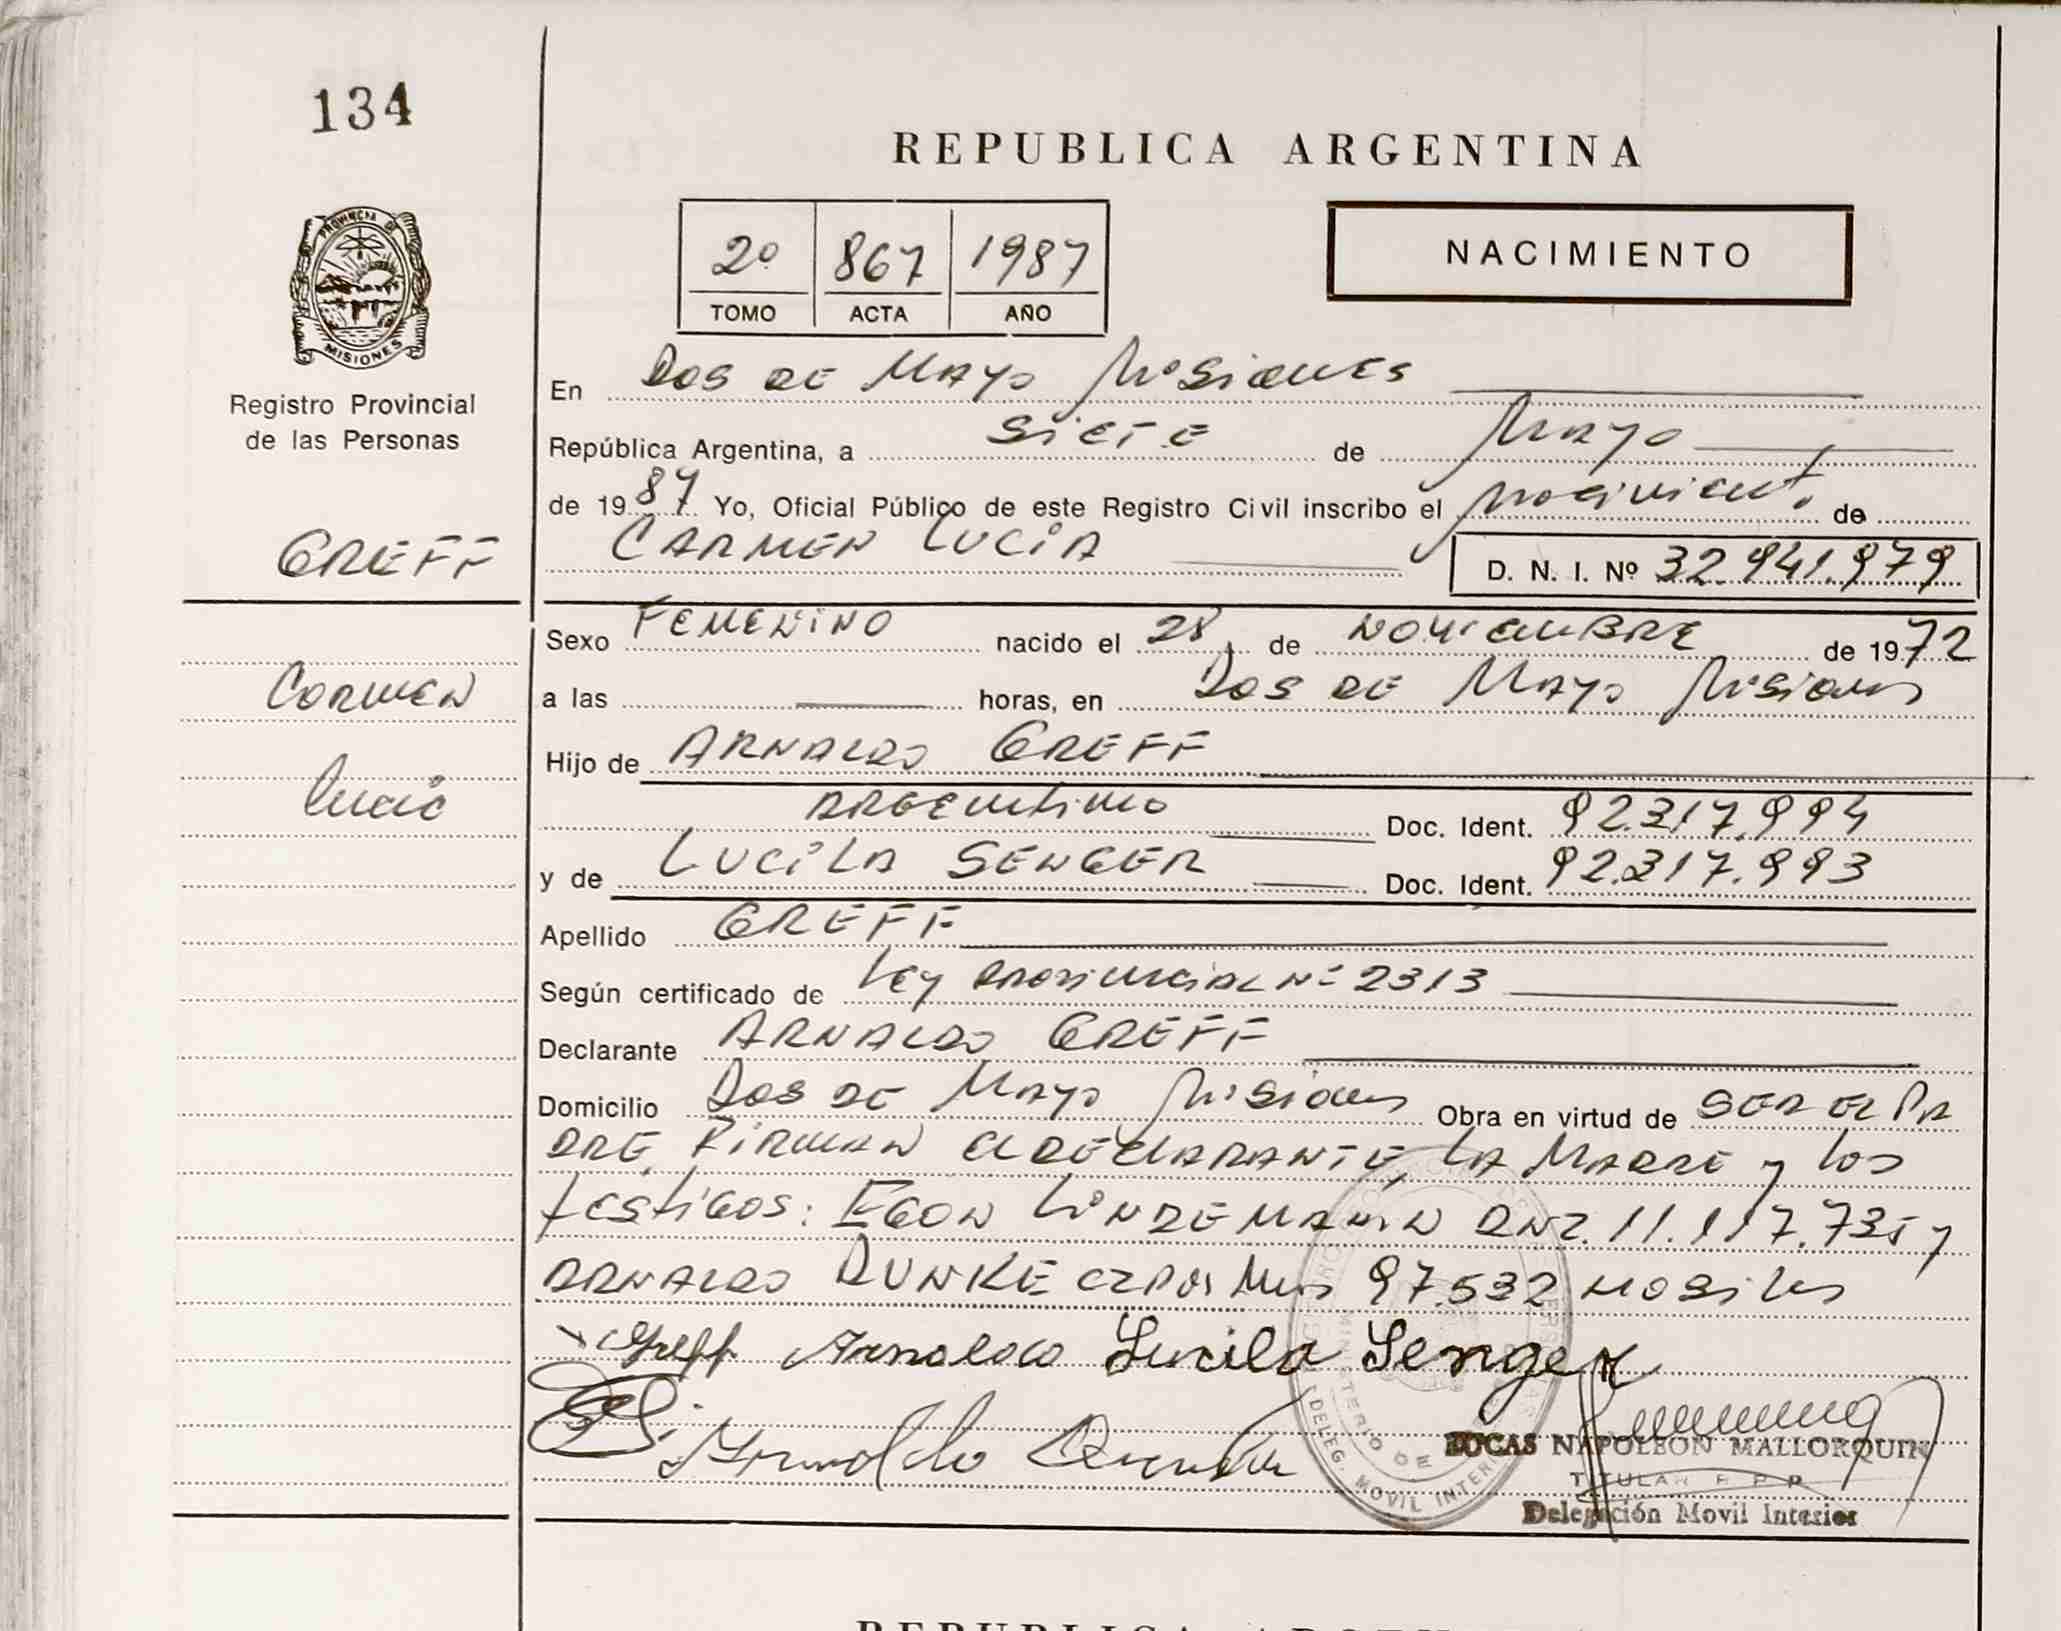 134
REPUBLICA ARGENTINA
2º 867 1987
TOMO ACTA AÑO
NACIMIENTO
PROVINCIA DE MISIONES
Registro Provincial
de las Personas
GREFF
Carmen
Lucia
En Dos de Mayo Misiones
República Argentina, a Siete de Mayo
de 1987 Yo, Oficial Público de este Registro Civil inscribo el nacimiento de
CARMEN LUCIA D. N. I. Nº 32.941.979
Sexo FEMENINO nacido el 28 de NOVIEMBRE de 1972
a las horas, en Dos de Mayo Misiones
Hijo de ARNALDO GREFF
ARGENTINO Doc. Ident. 92.317.994
y de LUCILA SENGER Doc. Ident. 92.317.993
Apellido GREFF
Según certificado de Ley PROVINCIAL Nº 2313
Declarante ARNALDO GREFF
Domicilio Dos de Mayo Misiones Obra en virtud de SER EL PA
DRE, FIRMAN el DECLARANTE, LA MADRE y los
testigos: EGON LINDEMANN DNI. 11.117.735 y
ARNALDO DUNKE 97.532
Greff Arnaldo Lucila Senger
Arnoldo
LUCAS NAPOLEON MALLORQUIN
TITULAR R P P
Delegación Movil Interior
DELEG. MOVIL INTERIOR
MINISTERIO DE
REPUBLICA ARGENTINA